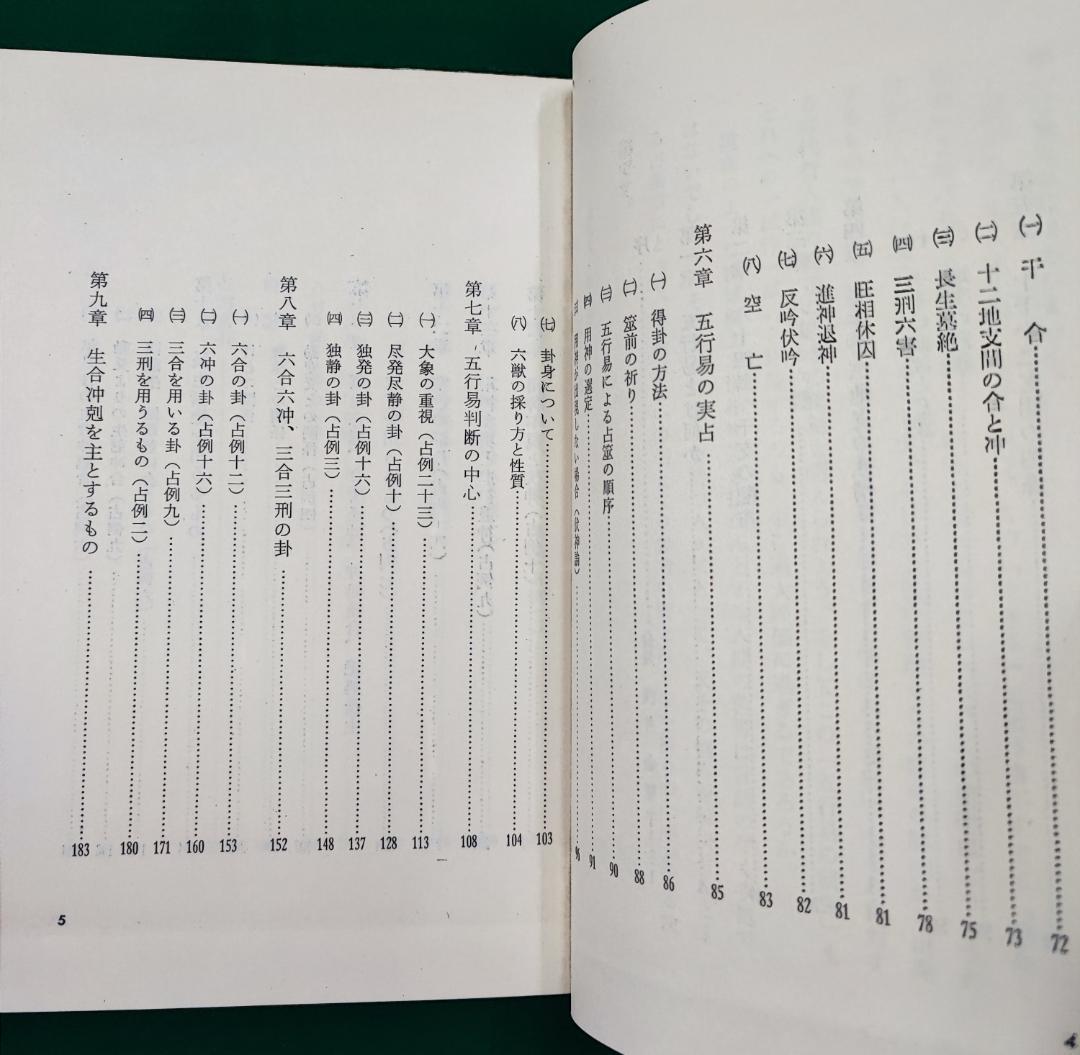 ㈠ 干合 72
㈡ 十二地支間の合と冲 73
㈢ 長生墓絶 75
㈣ 三刑六害 78
㈤ 旺相休囚 81
㈥ 進神退神 81
㈦ 反吟伏吟 82
㈧ 空亡 83
第六章 五行易の実占 85
㈠ 得卦の方法 86
㈡ 筮前の祈り 88
㈢ 五行易による占筮の順序 90
㈣ 用神の選定 91
㈤ 用神が出現しない場合(伏神論) 96
4
㈦ 卦身について 103
㈧ 六獣の採り方と性質 104
第七章 五行易判断の中心 108
㈠ 大象の重視(占例二十三) 113
㈡ 尽発尽静の卦(占例十) 128
㈢ 独発の卦(占例十六) 137
㈣ 独静の卦(占例三) 148
第八章 六合六冲、三合三刑の卦 152
㈠ 六合の卦(占例十二) 153
㈡ 六冲の卦(占例十六) 160
㈢ 三合を用いる卦(占例九) 171
㈣ 三刑を用うるもの(占例二) 180
第九章 生合冲剋を主とするもの 183
5